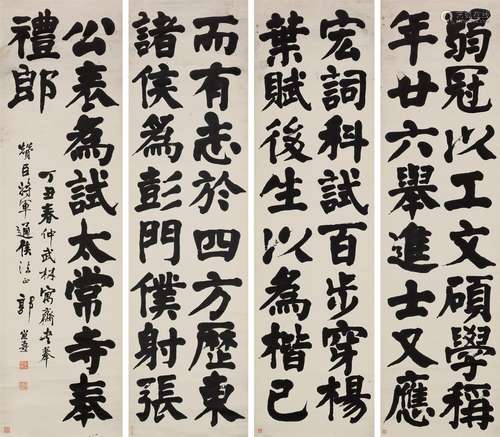 弱冠以工文碩學稱
年廿六舉進士又應
宏詞科試百步穿楊
葉賦後生以為楷已
而有志於四方歷東
諸侯為彭門僕射張
公表為試太常寺奉
禮郎
丁丑春仲武林寓齋書奉
贊臣將軍通侯法正 郭